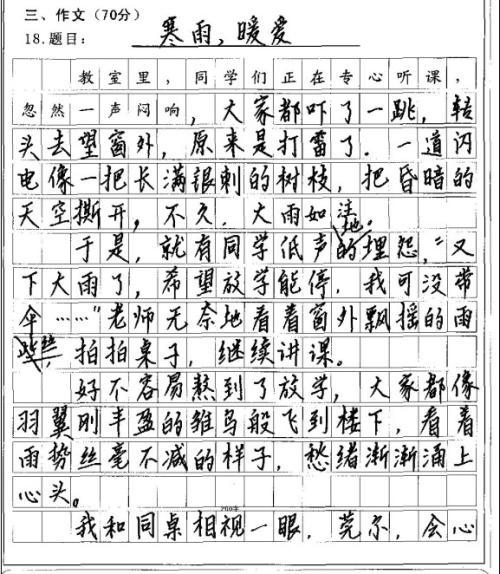 三、作文（70分）
18.题目：寒雨，暖爱
教室里，同学们正在专心听课，
忽然一声闷响，大家都吓了一跳，转
头去望窗外，原来是打雷了．一道闪
电像一把长满银刺的树枝，把昏暗的
天空撕开，不久．大雨如注．
于是，就有同学低声地埋怨，“又
下大雨了，希望放学能停．我可没带
伞……”老师无奈地看着窗外飘摇的雨
丝，拍拍桌子，继续讲课。
好不容易熬到了放学，大家都像
羽翼刚丰盈的雏鸟般飞到楼下，看着
雨势丝毫不减的样子，愁绪渐渐涌上
心头。
我和同桌相视一眼，莞尔，会心